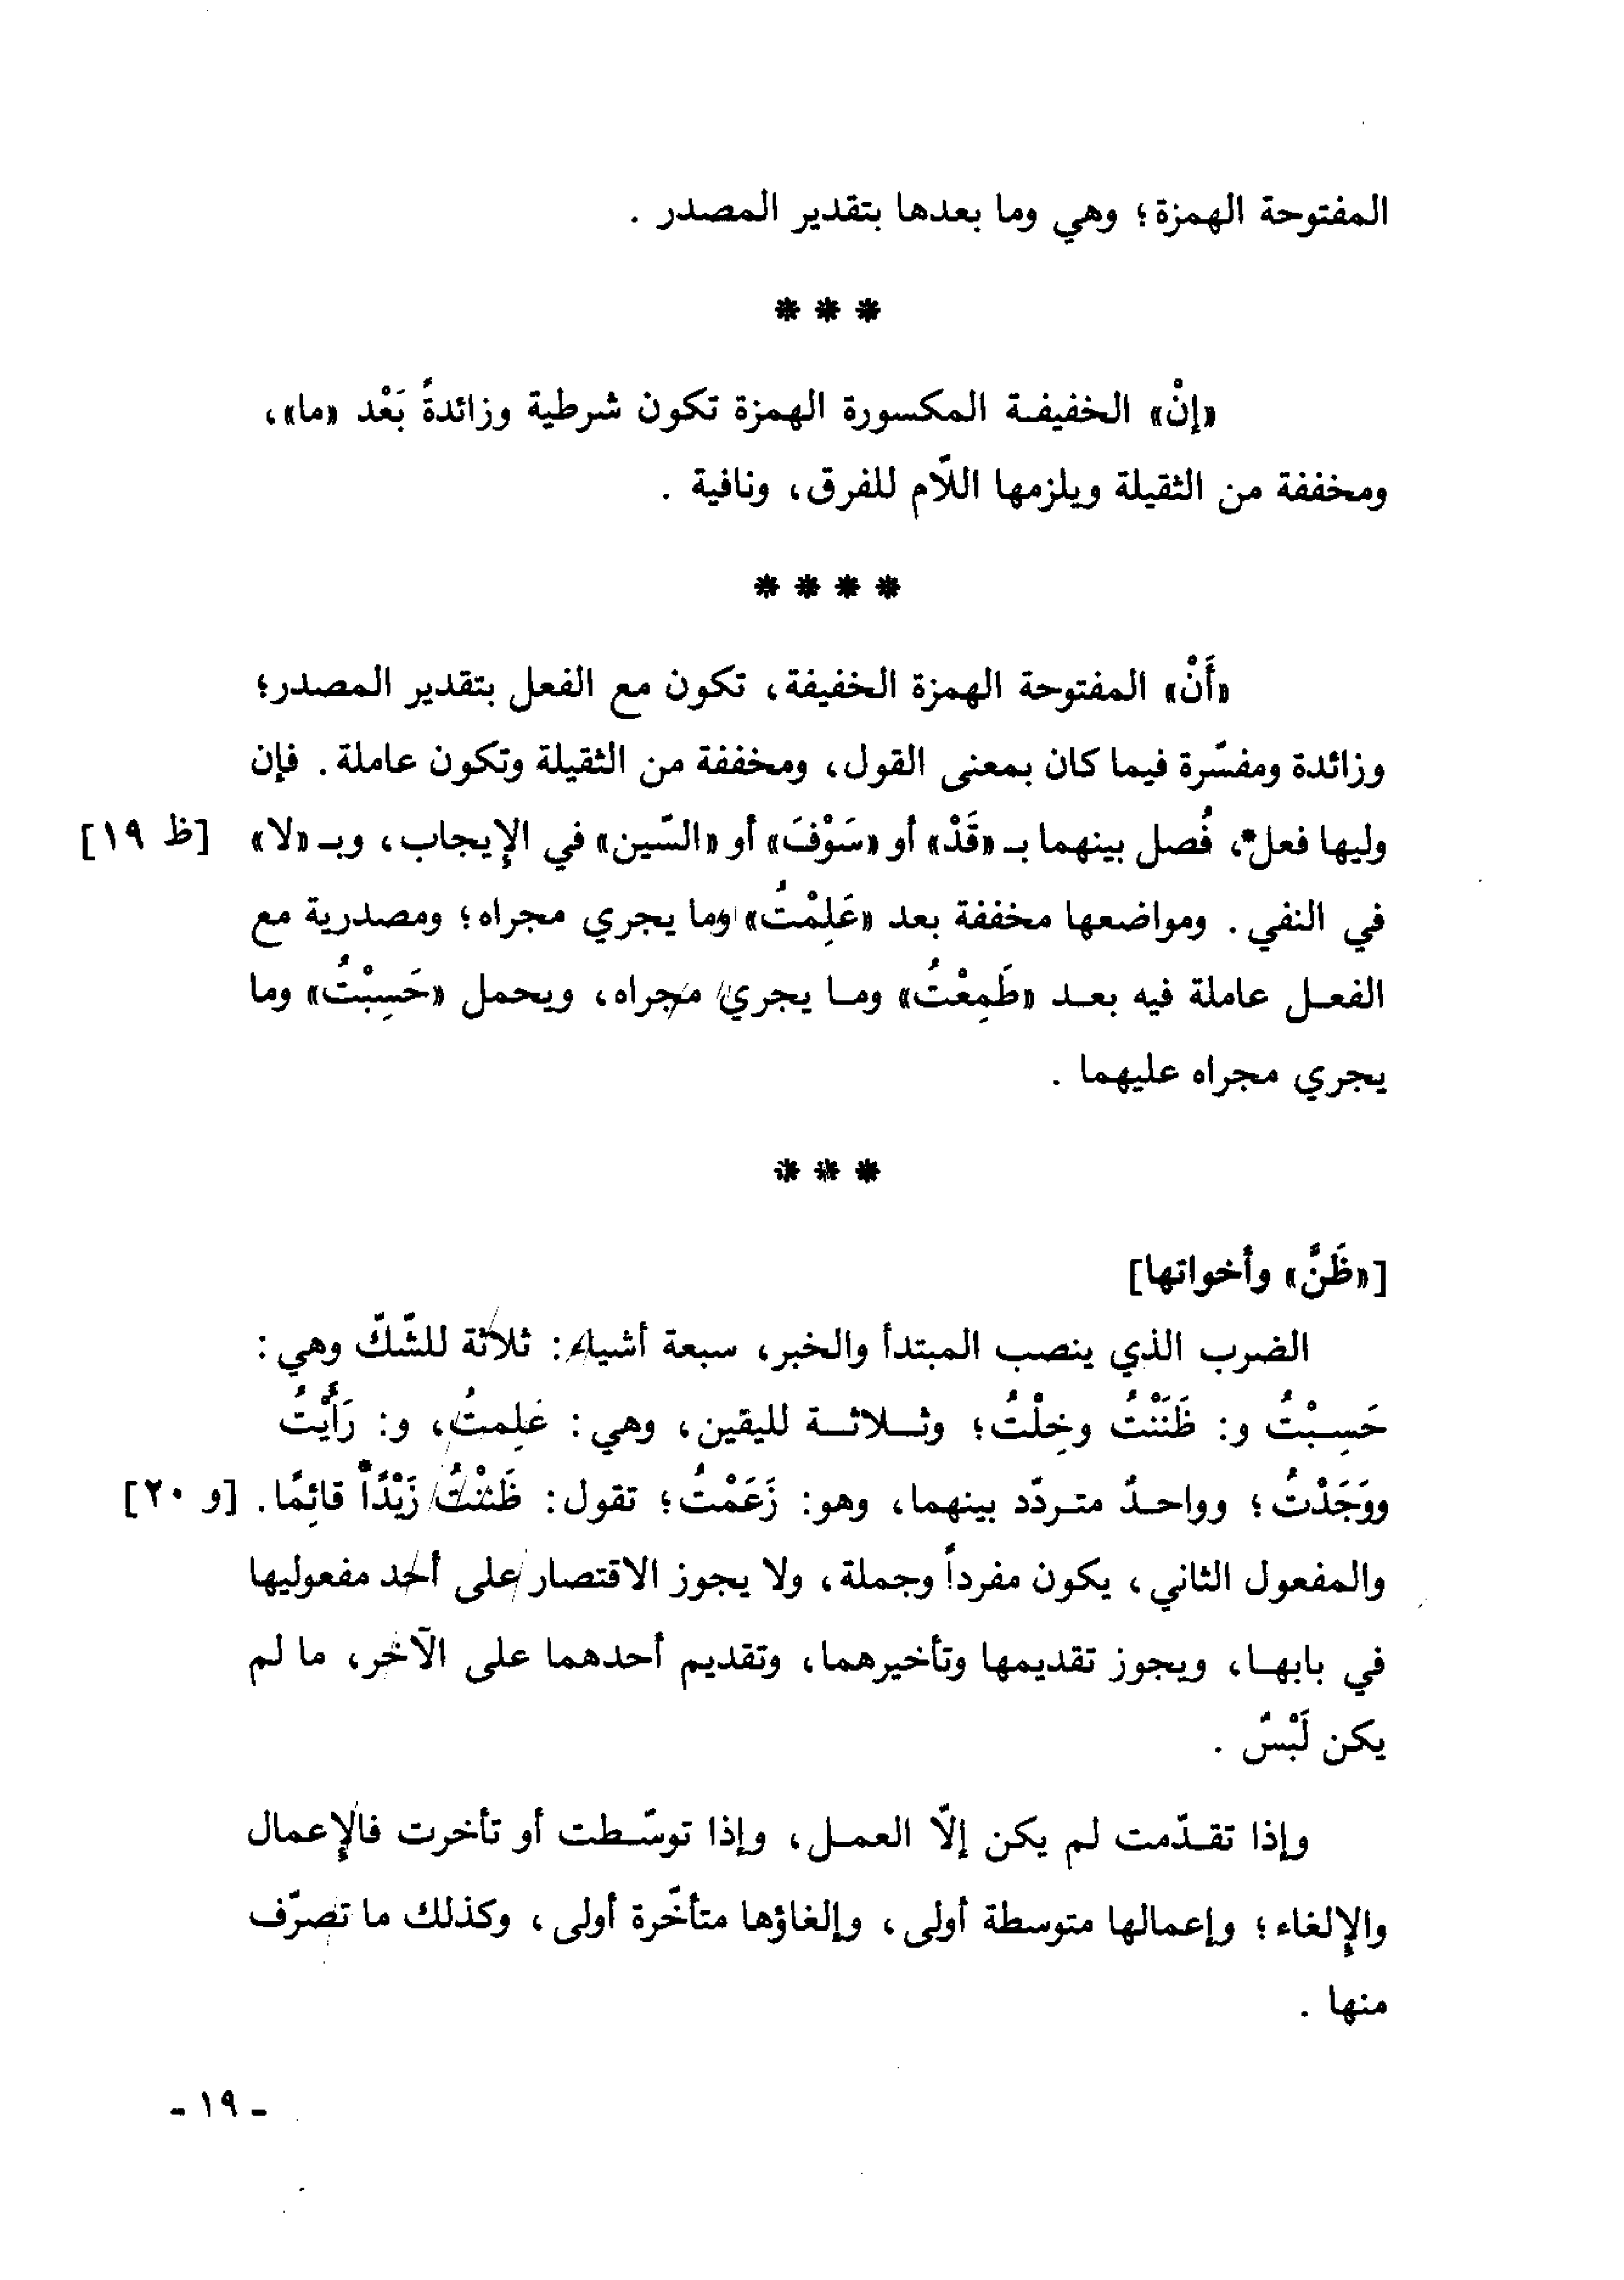 المفتوحة الهمزة؛ وهي وما بعدها بتقدير المصدر .
* * *
«إنْ» الخفيفة المكسورة الهمزة تكون شرطية وزائدةً بَعْد «ما»،
ومخففة من الثقيلة ويلزمها اللّام للفرق، ونافية .
* * * *
«أَنْ» المفتوحة الهمزة الخفيفة، تكون مع الفعل بتقدير المصدر؛
وزائدة ومفسّرة فيما كان بمعنى القول، ومخففة من الثقيلة وتكون عاملة . فإن
وليها فعل*، فُصل بينهما بـ «قَدْ» أو «سَوْفَ» أو «السّين» في الإيجاب، وبـ «لا» [ظ ١٩]
في النفي . ومواضعها مخففة بعد «عَلِمْتُ» وما يجري مجراه؛ ومصدرية مع
الفعل عاملة فيه بعد «طَمِعْتُ» وما يجري مجراه، ويحمل «حَسِبْتُ» وما
يجري مجراه عليهما .
* * *
[«ظَنَّ» وأخواتها]
الضرب الذي ينصب المبتدأ والخبر، سبعة أشياء: ثلاثة للشّكّ وهي :
حَسِبْتُ و: ظَنَنْتُ وخِلْتُ؛ وثلاثة لليقين، وهي : عَلِمتُ، و: رَأَيْتُ
ووَجَدْتُ؛ وواحدٌ متردّد بينهما، وهو: زَعَمْتُ؛ تقول: ظَنَنْتُ زَيْدًا* قائِمًا . [و ٢٠]
والمفعول الثاني، يكون مفرداً وجملة، ولا يجوز الاقتصار على أحد مفعوليها
في بابها، ويجوز تقديمها وتأخيرهما، وتقديم أحدهما على الآخر، ما لم
يكن لَبْسٌ .
وإذا تقدّمت لم يكن إلّا العمل، وإذا توسّطت أو تأخرت فالإعمال
والإلغاء؛ وإعمالها متوسطة أولى، وإلغاؤها متأخّرة أولى، وكذلك ما تصرّف
منها .
- ١٩ -